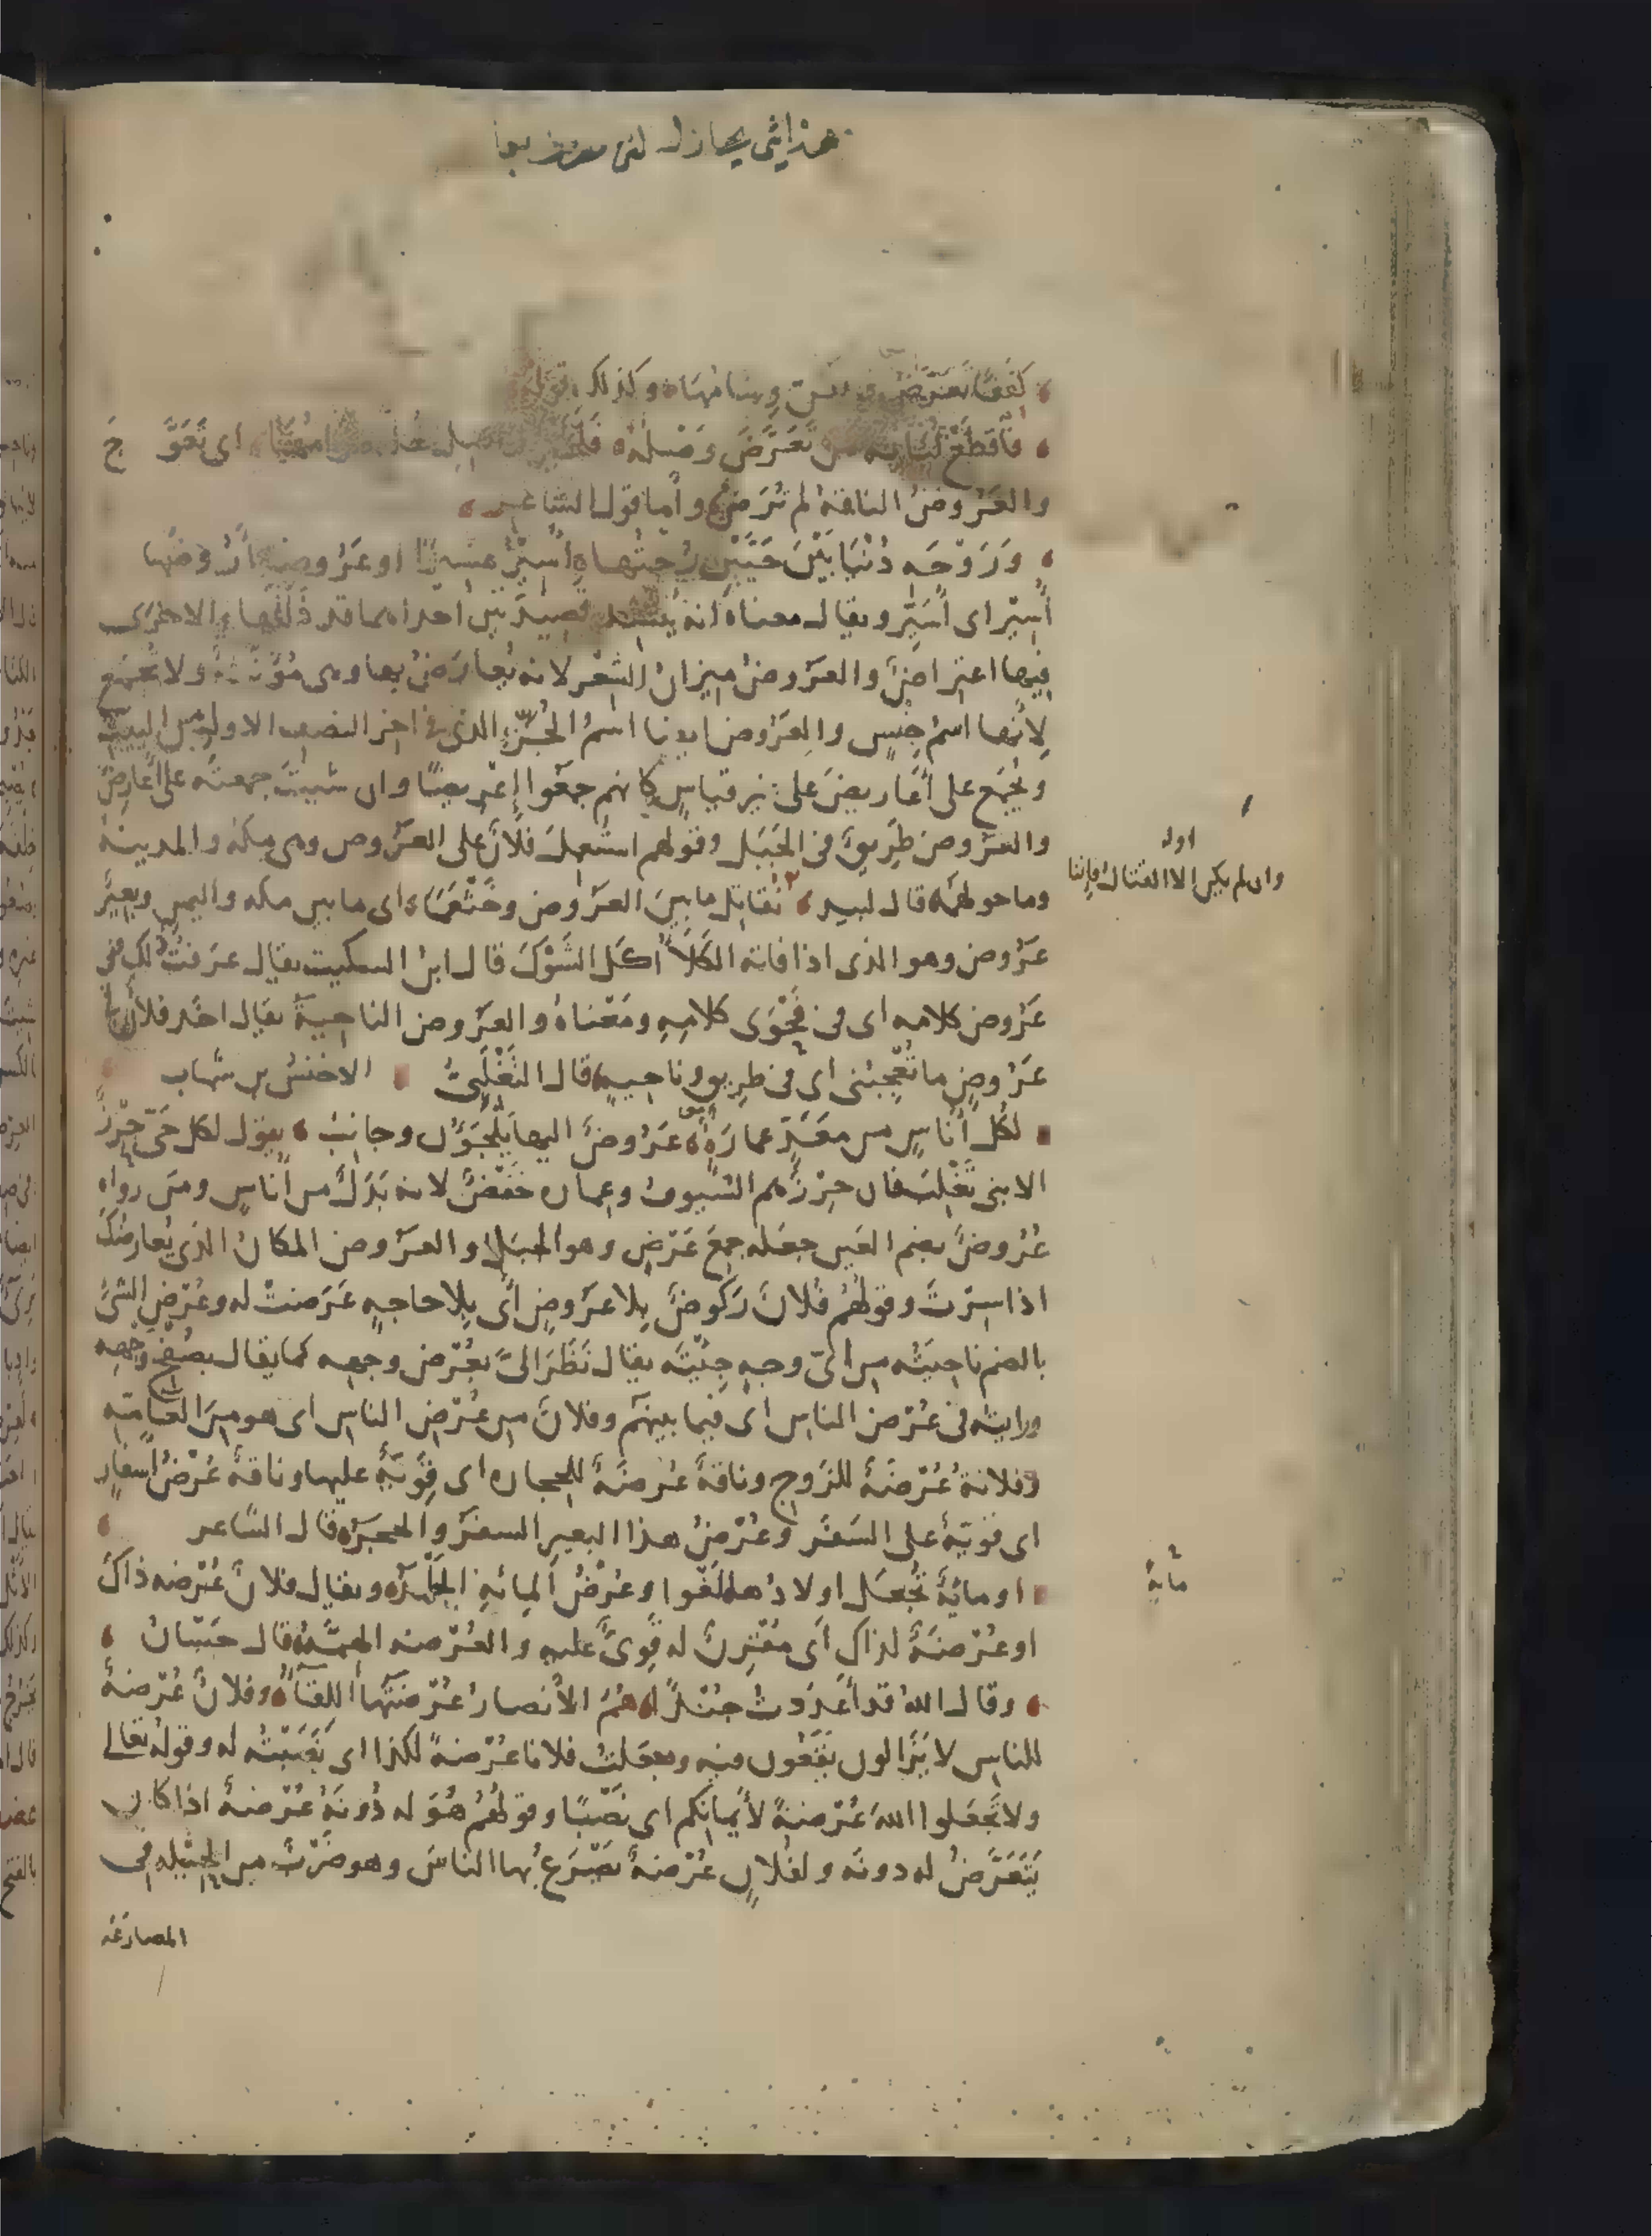 وكذلك قوله
فاقطع لبانة من تعرض وصله اى تعوج
والعَروضُ الناقةُ لم تُرَضْ واما قول الشاعر
وَرَوْحَه دُنْيَا بَيْنَ حَيَّيْنِ رُحْتُها أُسِيْرُ عَسِيْرًا او عَرُوضًا أَرُوضُها
أُسِيْر اى أُسَيِّر ويقال معناه انه يُنْشد قصيدتين احداهما قد ذَلَّلَها والاخرى
فيها اعتراضٌ والعَروضُ ميزانُ الشِعْر لانه يُعارَضُ بها وهى مُؤَنَّثةٌ ولا تُجْمَع
لِأَنَّها اسمُ جِنْسٍ والعَرُوض ايضا اسمُ الجُزْءِ الذى فى اخر النصف الاول من البيت
ويُجْمَع على أَعاريضَ على غير قياسٍ كانهم جمعوا إِعْرِيضًا وان شئتَ جمعتَه على أَعارِضَ
والعَرُوض طَرِيقٌ فى الجَبَل وقولهم استُعمِلَ فلانٌ على العَرُوض وهى مكة والمدينة
وما حولهما قال لبيد نُقاتِل ما بينَ العَرُوضِ وخَثْعَمَا اى ما بين مكه واليمن وبعيرٌ
عَرُوض وهو الذى اذا فاته الكَلَأُ أكل الشَوْكَ قال ابنُ السكيت يقال عرفتُ ذلك فى
عَرُوض كلامه اى فى فَحْوَى كلامِهِ ومَعْناهُ والعَرُوض الناحيةُ يقال اخذ فلانٌ فى
عَرُوضٍ ما تُعْجِبُنى اى فى طريق وناحيةٍ قال التَغْلَبِىُّ الاخنسُ بن شهاب
لكُلِّ أُناسٍ من مَعَدٍّ عمارَةٍ عَرُوضٌ اليها يَلْجَؤُن وجانِبُ يقول لكل حَىٍّ حِرْزٌ
الا بنى تَغْلِبَ فان حِرْزَهم السُيُوفُ وعِمارةٍ خَفْضٌ لانه بَدَلٌ من أُناسٍ ومن رواه
عُرُوضٌ بضم العَين جعَله جمعَ عَرْضٍ وهو الجبل والعَرُوض المكانُ الذى يُعارِضُكَ
اذا سِرْتَ وقولُهُم فُلانٌ رَكُوضٌ بِلا عَرُوضٍ اى بِلا حاجةٍ عَرَضتْ له وعُرْضُ الشئِ
بالضم ناحيَتُه من اىّ وجهٍ جِئْتَه يقال نَظَرَ الىَّ بعُرْض وجهِه كما يقال بصُفْحِ وَجْهِه
ورايته فى عُرْض الناس اى فيما بينهم وفلانٌ من عُرْضِ الناس اى هو من العامّةِ
وفلانةُ عُرْضَةٌ للزَوج وناقةٌ عُرضَةٌ للحجارة اى قَوِيَّةٌ عليها وناقةٌ عُرْضُ أَسفارٍ
اى قويّةٌ على السَفَر وعُرْضُ هذا البعيرِ السفَرُ والحجَر قال الشاعر
او مائةٌ تُجْعَل اولادُها لَغْوًا وعُرْضُ المِائةِ الجَلْمَدُ ويقال فلانٌ عُرْضةُ ذاك
او عُرْضَةٌ لذاك اى مُقْرِنٌ له قَوِىٌّ عليهِ والعُرْضه الهِمَّةُ قال حَسّانُ
وقال اللهُ قد أَعدَدتُ جُنْدًا هُمُ الأَنصارُ عُرْضَتُها اللِقَآءُ وفلانٌ عُرْضةٌ
للناسِ لا يَزَالون يَقَعُون فيه وجعلتُ فلانا عُرْضةً لكذا اى نَصَبْتُه له وقوله تعالى
ولا تجعَلوا اللهَ عُرْضةً لأَيْمانِكم اى نَصْبًا وقولُهُمْ هُوَ له دُونَهُ عُرْضةٌ اذا كان
يَتَعَرَّضُ له دونَه ولفلانٍ عُرْضةٌ يَصْرَعُ بها الناسَ وهو ضَرْبٌ من الحِيْلَه فى
المصارَعَه
اوله
وان لم يكن الا القتال فإننا
مائة